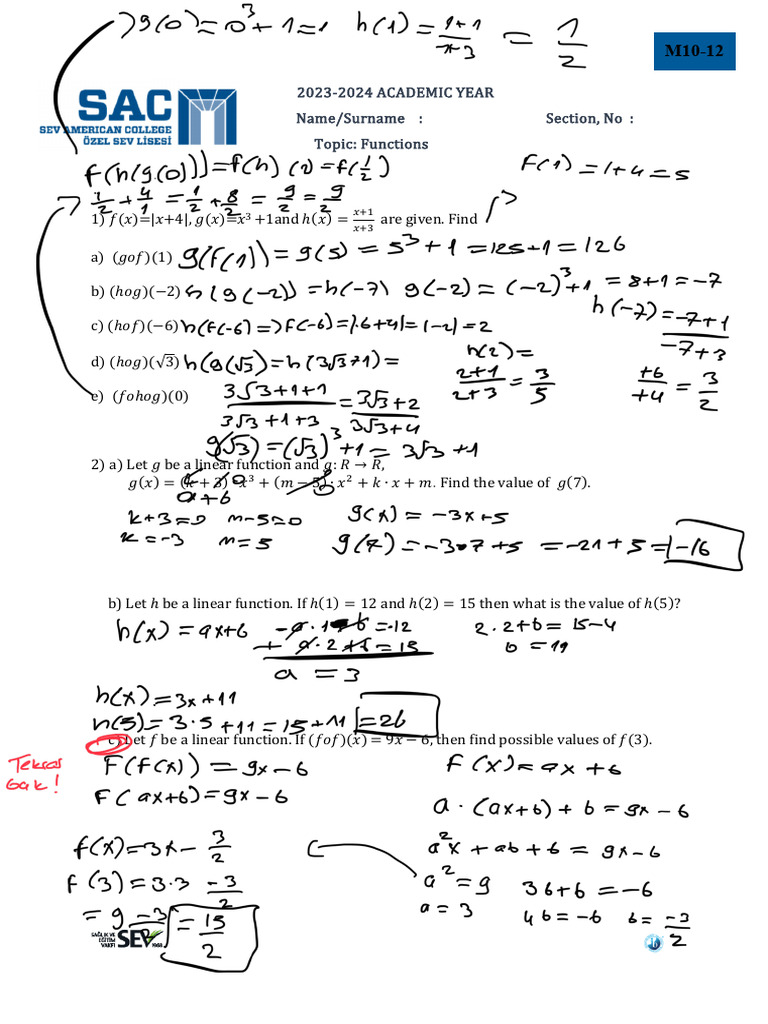 g(0)=0³+1=1 h(1)=(1+1)/(1+3) = 1/2
M10-12
SAC
SEV AMERICAN COLLEGE
ÖZEL SEV LİSESİ
2023-2024 ACADEMIC YEAR
Name/Surname : Section, No :
Topic: Functions
f(h(g(0)))=f(h)(1)=f(1/2) F(1)=1+4=5
1/2+4/1=1/2+8/2=9/2=9/2
1) f(x)=|x+4|, g(x)=x³+1and h(x) = (x+1)/(x+3) are given. Find
a) (gof)(1) g(f(1))=g(5)=5³+1=125+1=126
b) (hog)(−2) h(g(-2))=h(-7) g(-2)=(-2)³+1=8+1=-7
h(-7)=(-7+1)/(-7+3)
c) (hof)(−6) h(f(-6)=>f(-6)=|-6+4|=|-2|=2
d) (hog)(√3) h(g(√3)=h(3√3+1)= h(2)=
(2+1)/(2+3)=3/5 +6/+4=3/2
e) (fohog)(0) (3√3+1+1)/(3√3+1+3)=(3√3+2)/(3√3+4)
g(√3)=(√3)³+1=3√3+1
2) a) Let g be a linear function and g: R → R,
g(x) = (k + 3) · x³ + (m − 5) · x² + k · x + m. Find the value of g(7).
0 0
ax+b
k+3=0 m-5=0 g(x)=-3x+5
k=-3 m=5 g(7)=-3•7+5=-21+5=-16
b) Let h be a linear function. If h(1) = 12 and h(2) = 15 then what is the value of h(5)?
h(x)=ax+b -a·1-b=-12 2·2+b=15-4
+ a·2+b=15 b=11
a=3
h(x)=3x+11
h(5)=3·5+11=15+11=26
c) Let f be a linear function. If (fof)(x) = 9x − 6, then find possible values of f(3).
Tekrar
bak!
F(f(x))=9x-6 F(x)=ax+b
F(ax+b)=9x-6 a·(ax+b)+b=9x-6
f(x)=3x-3/2 a²x+ab+b=9x-6
f(3)=3·3-3/2 a²=9 3b+b=-6
=9-3/2=15/2 a=3 4b=-6 b=-3/2
SAĞLIK VE
EĞİTİM
VAKFI
SEV 1968